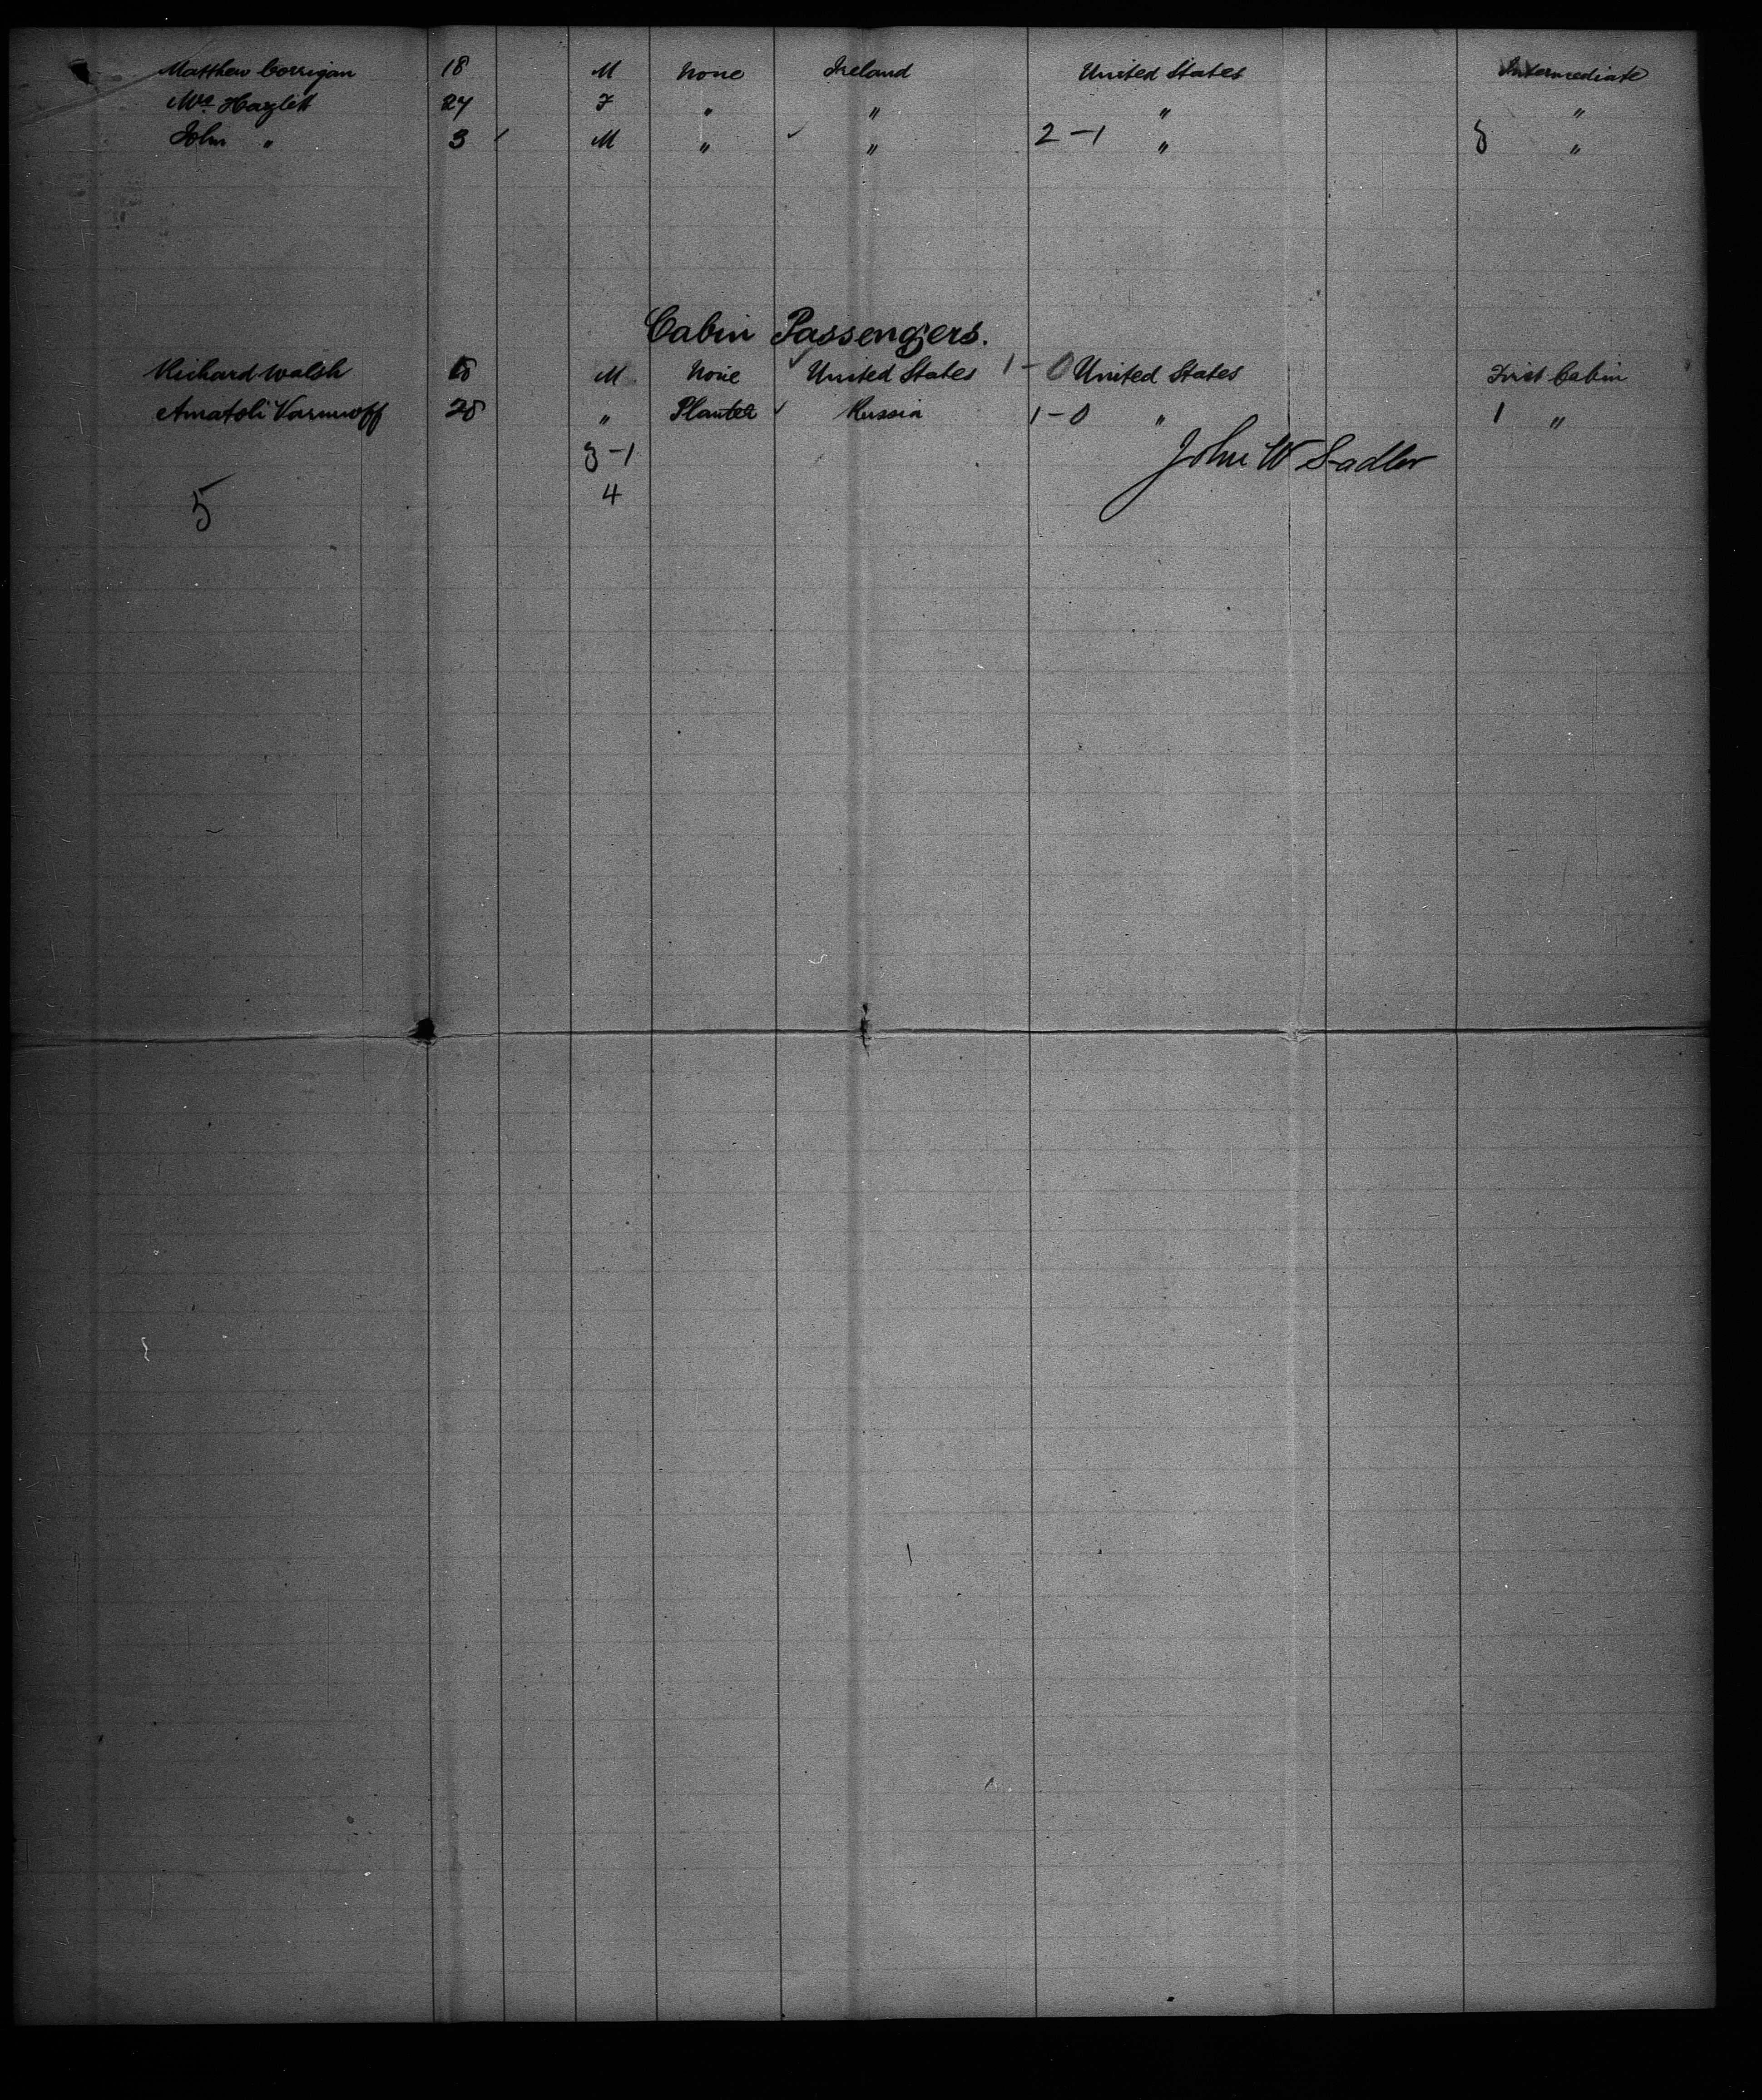 Matthew Corrigan 18 M None Ireland United States Intermediate
Mrs Hazlett 27 F " " " "
John " 3 M " " 2-1 " 8 "
Cabin Passengers.
Richard Walsh 18 M None United States 1-0 United States First Cabin
Anatoli 28 " Planter Russia 1-0 " 1 "
3-1 John W Sadler
5 4